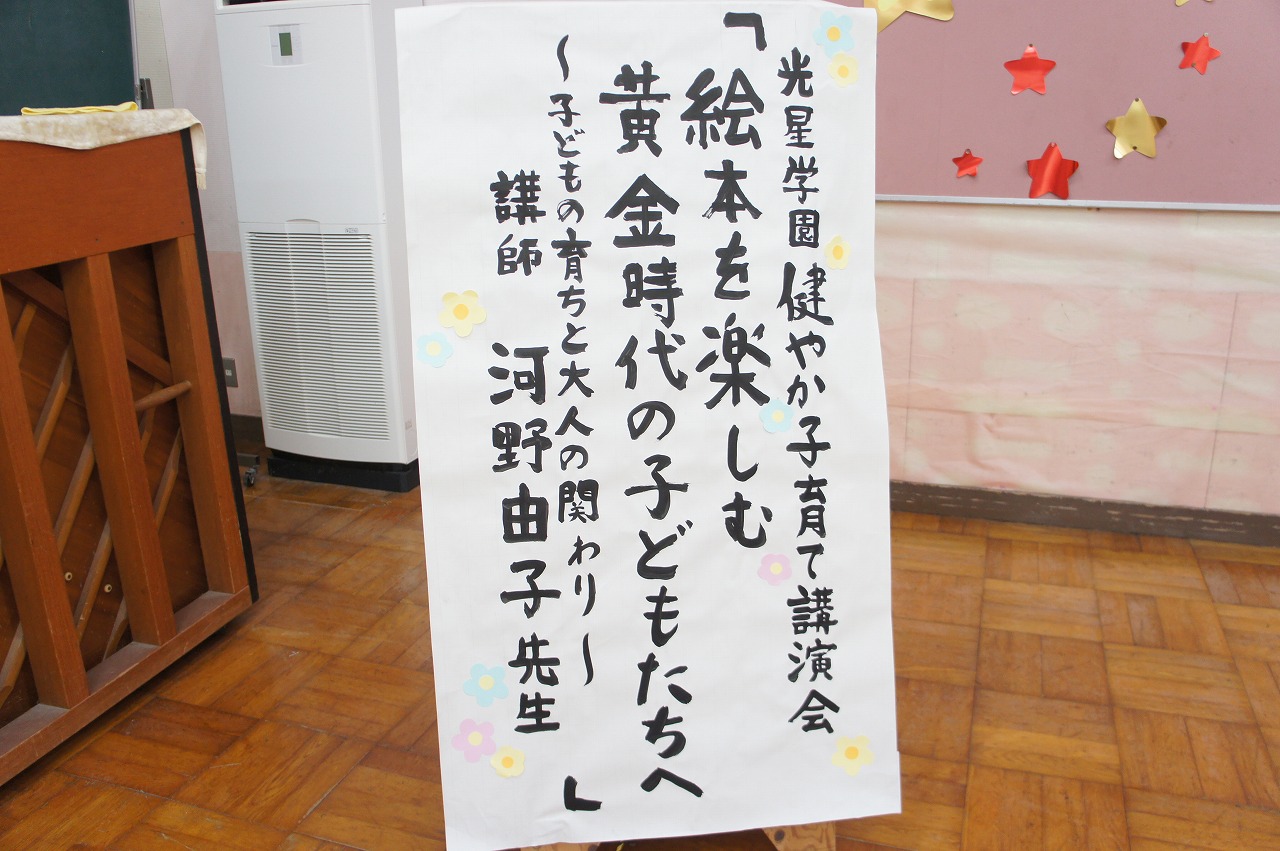 光星学園 健やか子育て講演会
「絵本を楽しむ
黄金時代の子どもたちへ
～子どもの育ちと大人の関わり～」
講師 河野由子先生